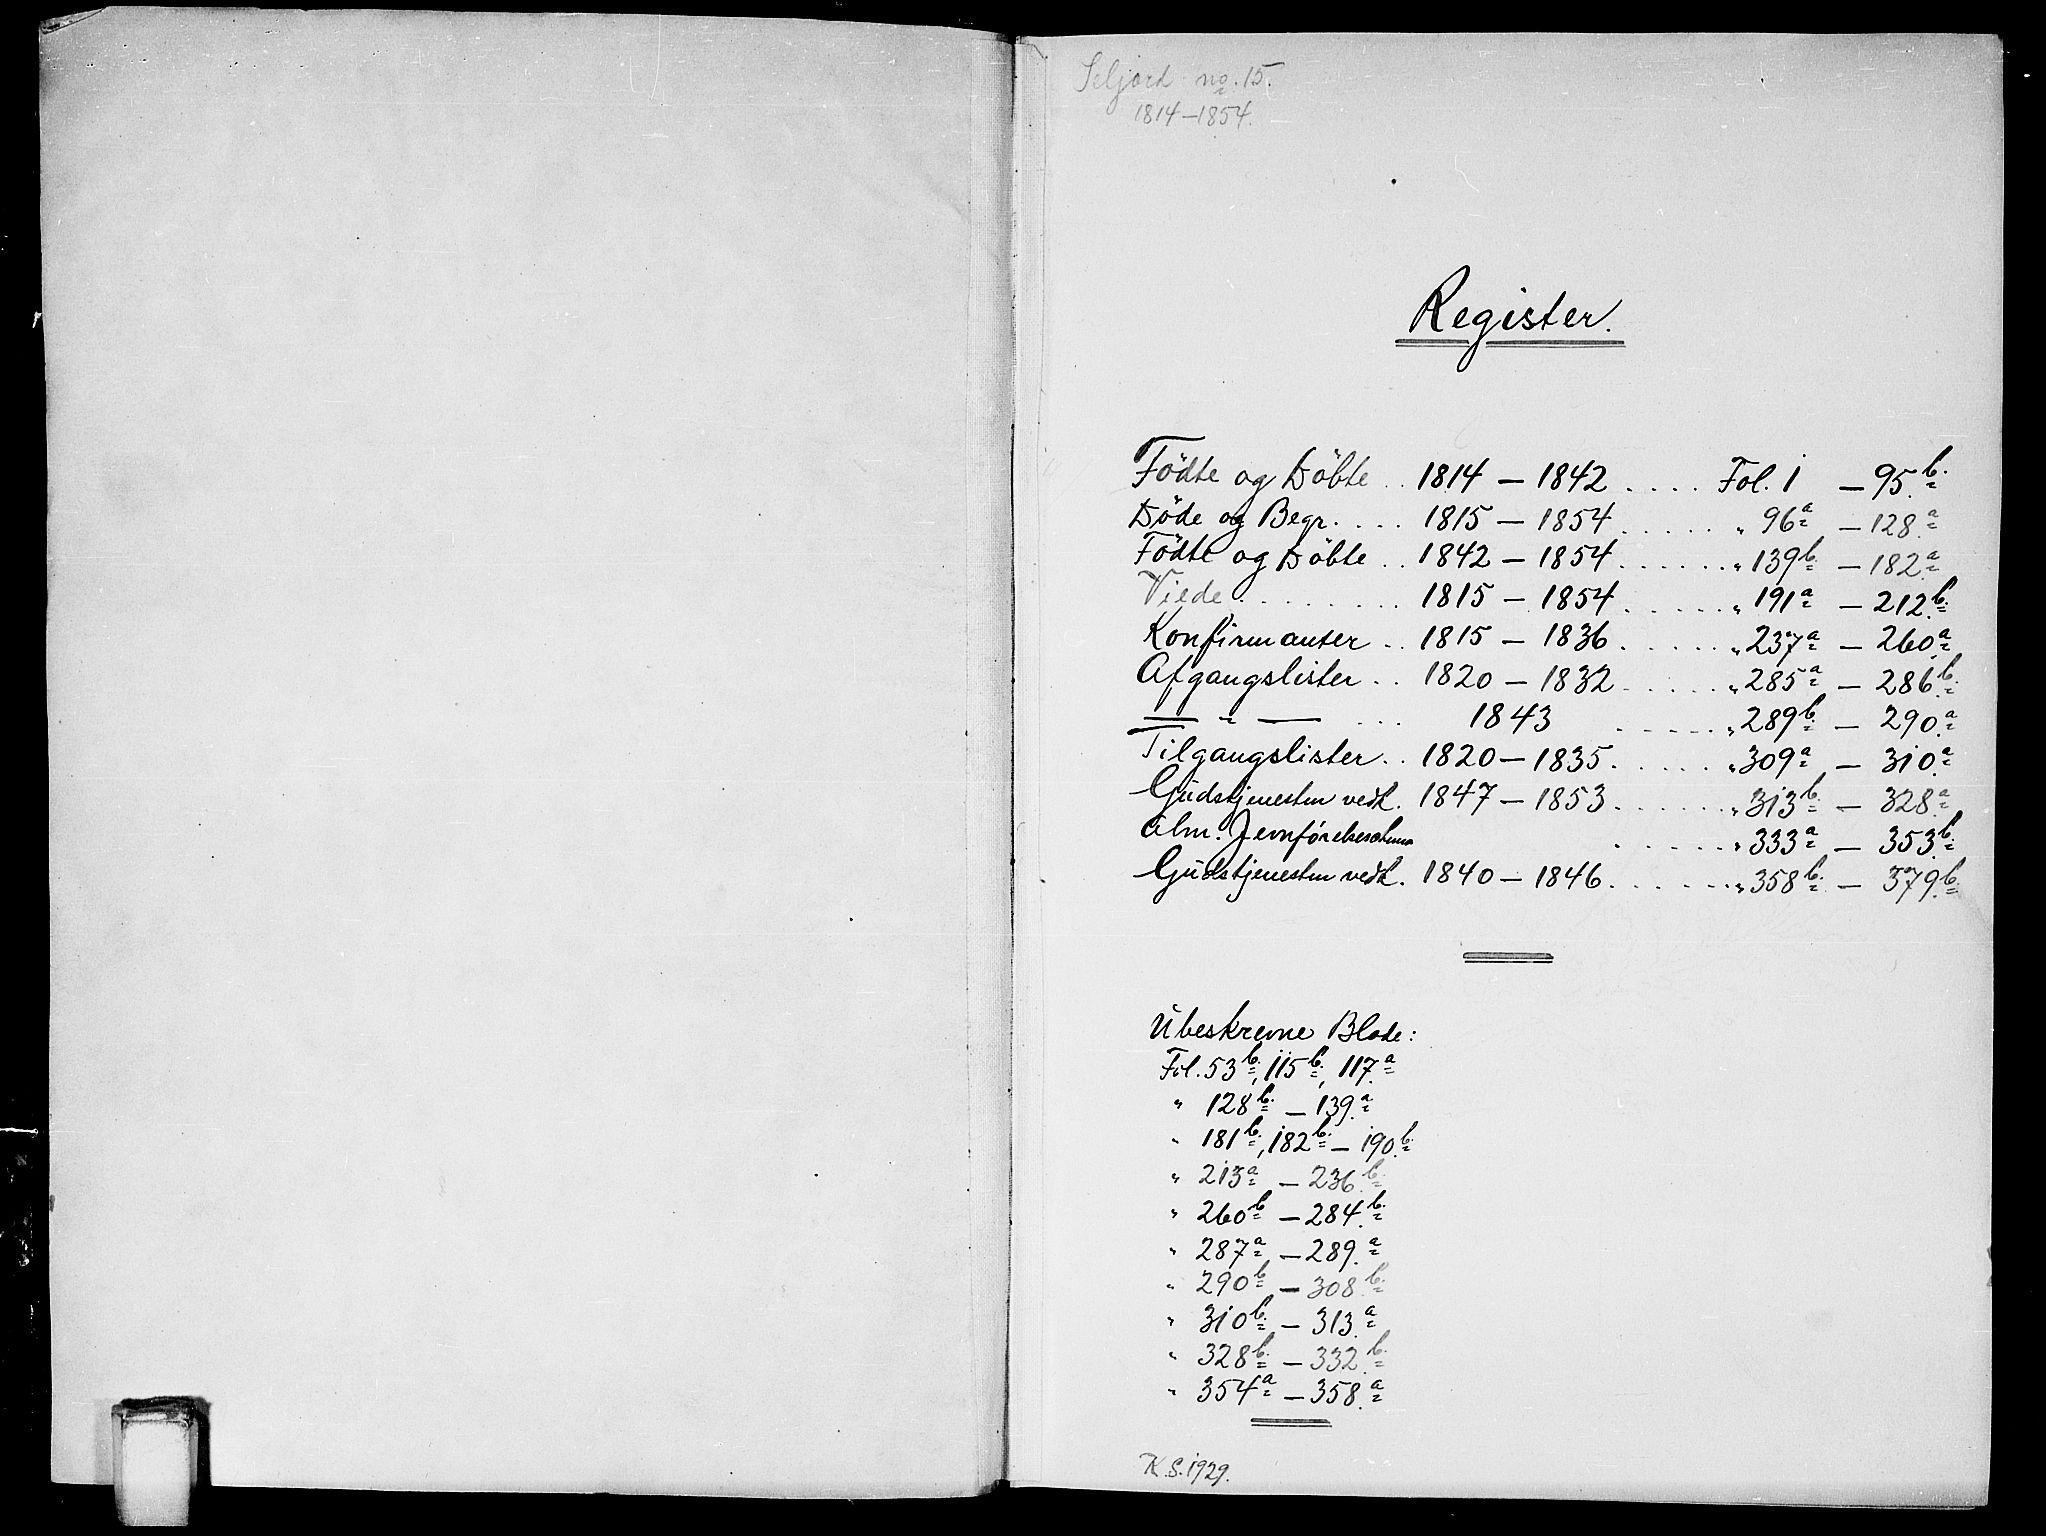 Seljord no. 15.
1814–1854.
Register.
Födte og Döbte .. 1814 – 1842 .... Fol. 1 – 95b.
Döde og Begr. .... 1815 – 1854 ..... " 96a – 128a
Födte og Döbte .. 1842 – 1854 ...... " 139b – 182a
Viede ......... 1815 – 1854 ...... " 191a – 212b.
Konfirmanter .. 1815 – 1836 ...... " 237a – 260a
Afgangslister .. 1820 – 1832 ..... " 285a – 286b.
— " — ... 1843 ...... " 289b – 290a
Tilgangslister .. 1820 – 1835 ...... " 309a – 310a
Gudstjenesten vedk. 1847 – 1853 ...... " 313b – 328a
Alm. Jevnförelses ...... " 333a – 353b.
Gudstjenesten vedk. 1840 – 1846 ...... " 358b. – 379b.
Ubeskrevne Blade:
Fol. 53b, 115b, 117a
" 128b – 139a
" 181b, 182b – 190b
" 213a – 236b
" 260b – 284b
" 287a – 289a
" 290b – 308b
" 310b – 313a
" 328b – 332b
" 354a – 358a
K.S. 1929.